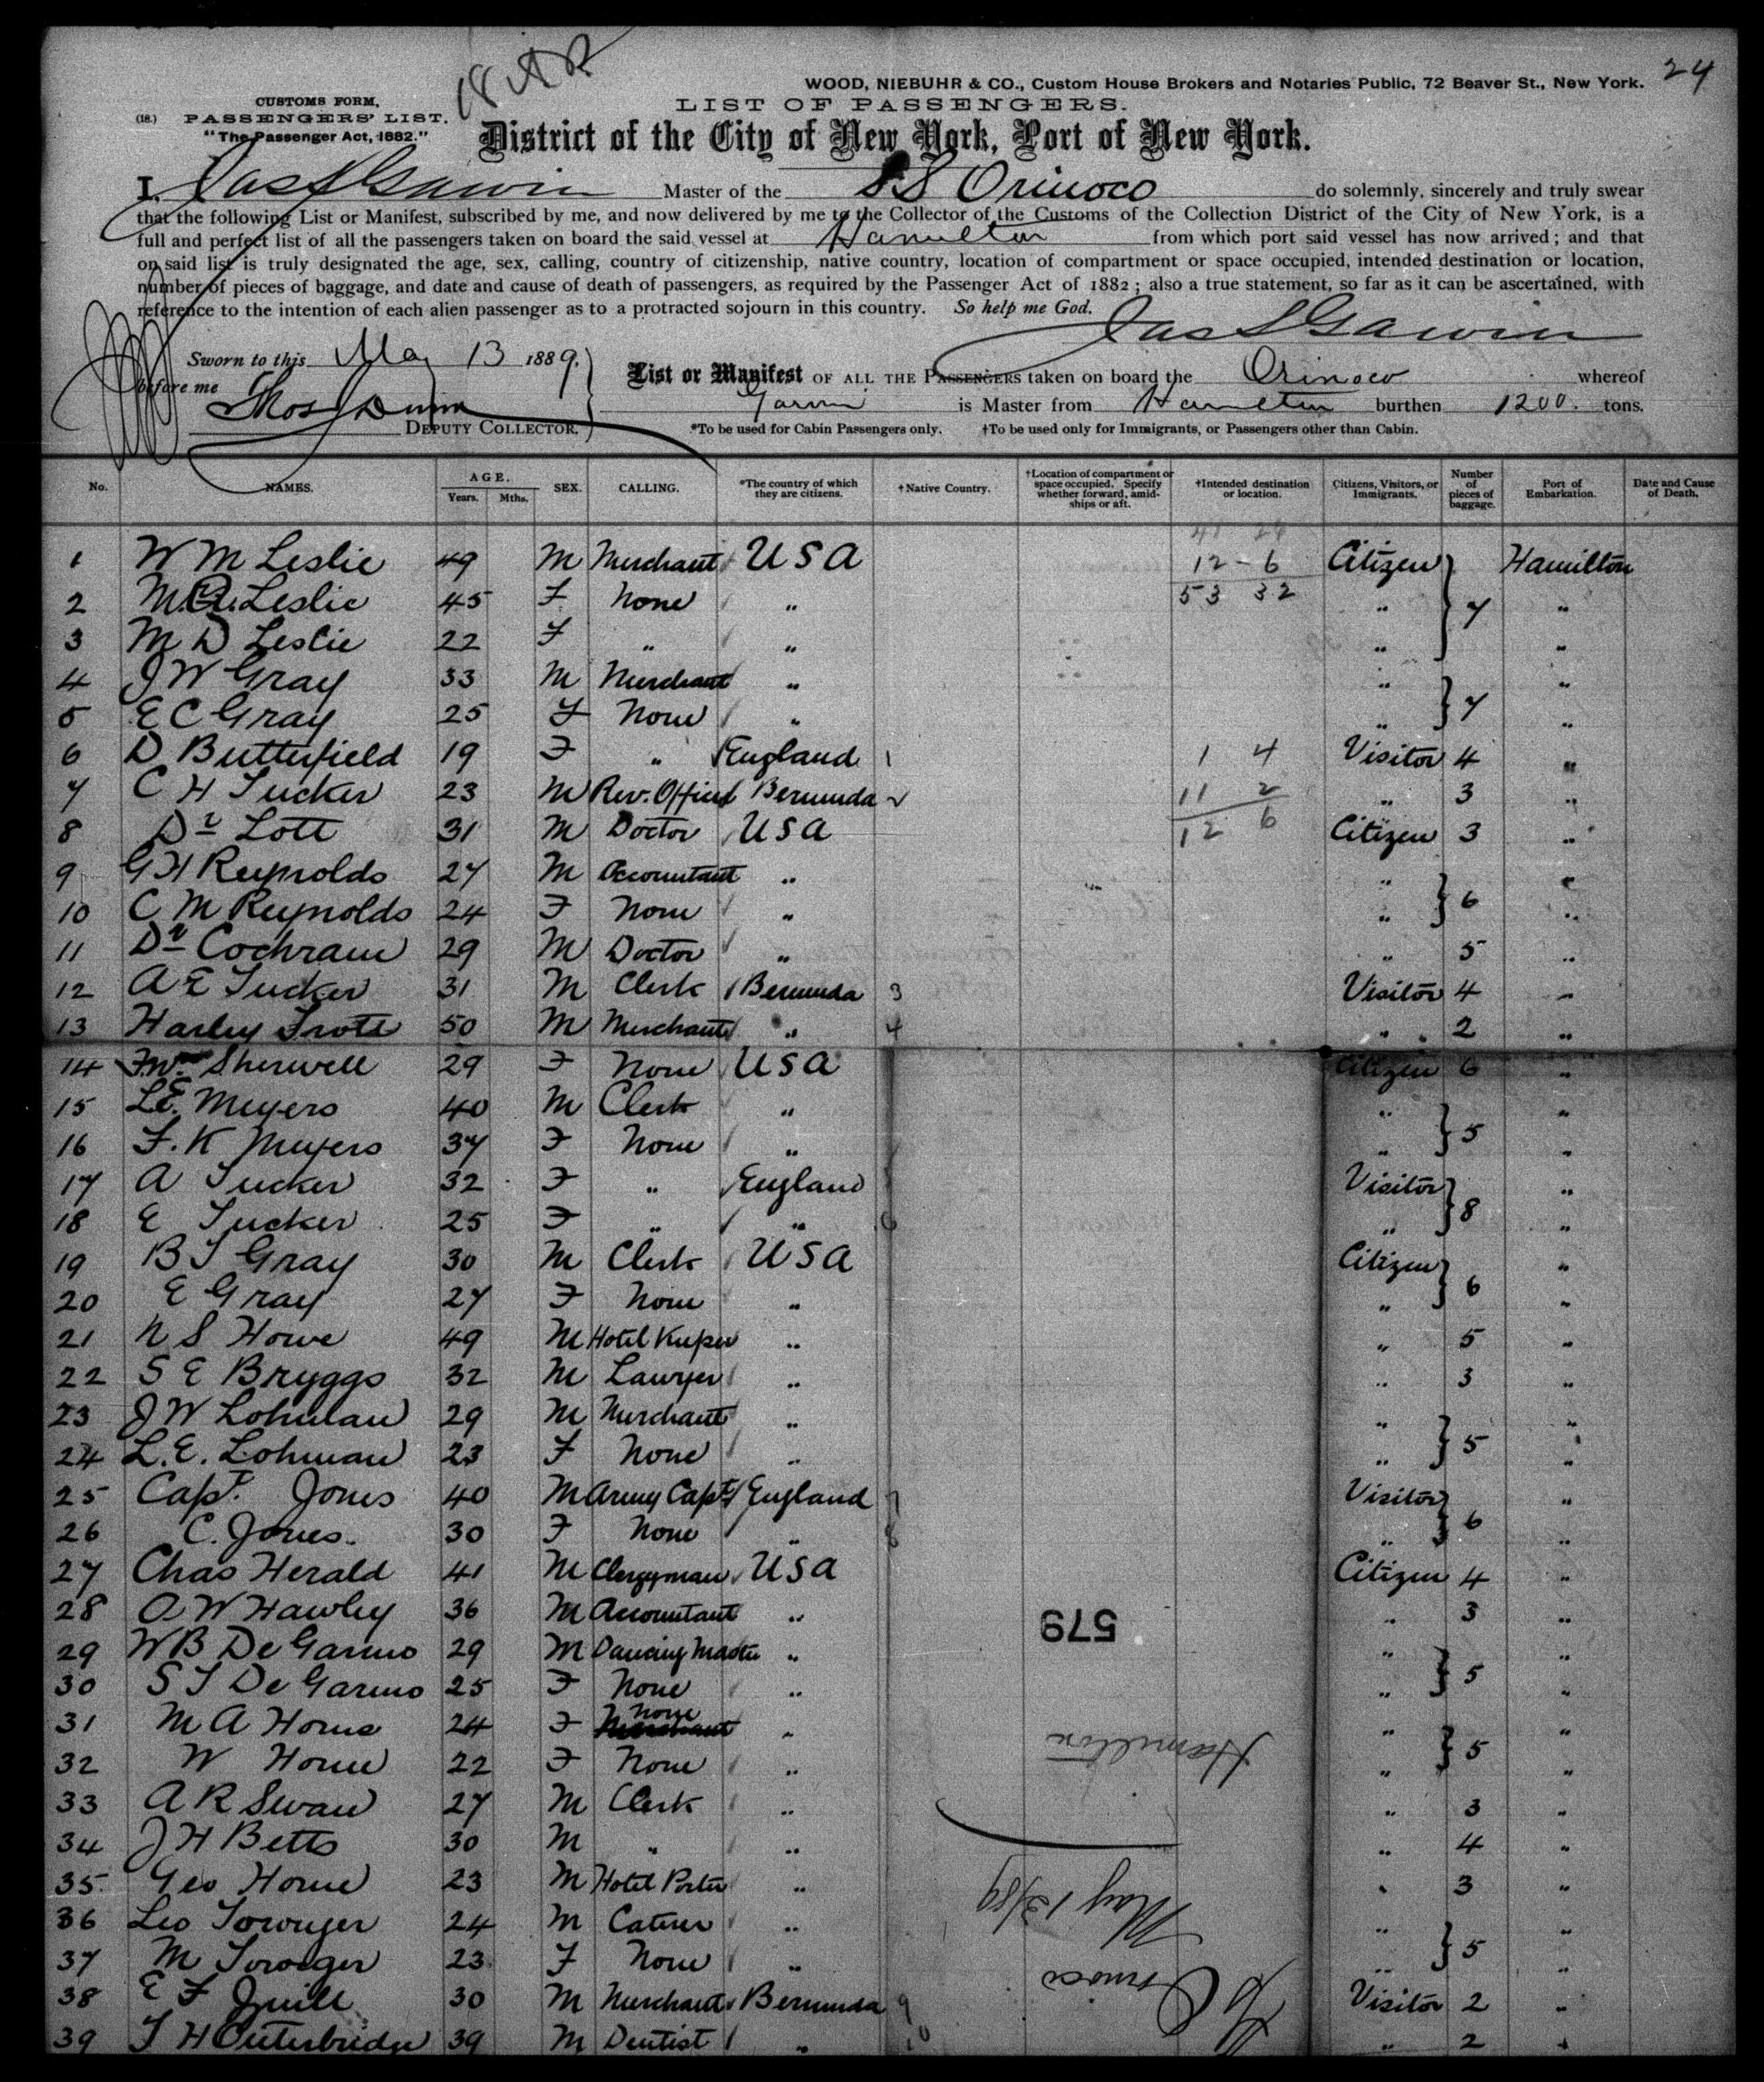 18 A R
24
WOOD, NIEBUHR & CO., Custom House Brokers and Notaries Public, 72 Beaver St., New York.
CUSTOMS FORM,
(18.) PASSENGERS' LIST.
"The Passenger Act, 1882."
LIST OF PASSENGERS.
District of the City of New York, Port of New York.
I, Jas S Garvin Master of the SS Orinoco do solemnly, sincerely and truly swear
that the following List or Manifest, subscribed by me, and now delivered by me to the Collector of the Customs of the Collection District of the City of New York, is a
full and perfect list of all the passengers taken on board the said vessel at Hamilton from which port said vessel has now arrived; and that
on said list is truly designated the age, sex, calling, country of citizenship, native country, location of compartment or space occupied, intended destination or location,
number of pieces of baggage, and date and cause of death of passengers, as required by the Passenger Act of 1882; also a true statement, so far as it can be ascertained, with
reference to the intention of each alien passenger as to a protracted sojourn in this country. So help me God.
Jas S Garvin
Sworn to this May 13 1889,
before me
Thos J Dunn
DEPUTY COLLECTOR.
List or Manifest OF ALL THE PASSENGERS taken on board the Orinoco whereof
Garvin is Master from Hamilton burthen 1200. tons.
*To be used for Cabin Passengers only. †To be used only for Immigrants, or Passengers other than Cabin.
No. NAMES. AGE. Years. Mths. SEX. CALLING. *The country of which they are citizens. †Native Country. †Location of compartment or space occupied. Specify whether forward, amidships or aft. †Intended destination or location. Citizens, Visitors, or Immigrants. Number of pieces of baggage. Port of Embarkation. Date and Cause of Death.
41 26
1 W M Leslie 49 M Merchant USA 12-6 Citizen Hamilton
2 M. Leslie 45 F None " 53 32 " 7 "
3 M D Leslie 22 F " " " "
4 J W Gray 33 M Merchant " " "
5 E C Gray 25 F None " " 7 "
6 D Butterfield 19 F " England 1 1 4 Visitor 4 "
7 C H Tucker 23 M Rev. Officer Bermuda 2 11 2 " 3 "
8 Dr Lott 31 M Doctor USA 12 6 Citizen 3 "
9 G H Reynolds 27 M Accountant " " "
10 C M Reynolds 24 F None " " 6 "
11 Dr Cochran 29 M Doctor " " 5 "
12 A E Tucker 31 M Clerk Bermuda 3 Visitor 4 "
13 Harley Trott 50 M Merchant " 4 " 2 "
14 Sherwell 29 F None USA Citizen 6 "
15 L E. Meyers 40 M Clerk " " "
16 F. K Meyers 37 F None " " 5 "
17 A Tucker 32 F " England Visitor "
18 E Tucker 25 F " " 6 " 8 "
19 B T Gray 30 M Clerk USA Citizen "
20 E Gray 27 F None " " 6 "
21 N S Howe 49 M Hotel Keeper " " 5 "
22 S E Bryggs 32 M Lawyer " " 3 "
23 J W Lohman 29 M Merchant " " "
24 L. E. Lohman 23 F None " " 5 "
25 Capt. Jones 40 M Army Capt England 7 Visitor "
26 C. Jones. 30 F None " 8 " 6 "
27 Chas Herald 41 M Clergyman USA Citizen 4 "
28 A W Hawley 36 M Accountant " " 3 "
29 W B De Garmo 29 M Dancing Master " " "
30 S T De Garmo 25 F None " " 5 "
31 M A Horne 24 F None " " "
32 W Horne 22 F None " " 5 "
33 A R Swan 27 M Clerk " " 3 "
34 J H Betts 30 M " " " 4 "
35 Geo Horne 23 M Hotel Porter " " 3 "
36 Leo 24 M Caterer " " "
37 M 23 F None " " 5 "
38 E F Zuill 30 M Merchant Bermuda 9 Visitor 2 "
39 T H Outerbridge 39 M Dentist " 10 " 2 "
579
Hamilton
May 13/89
SS Orinoco